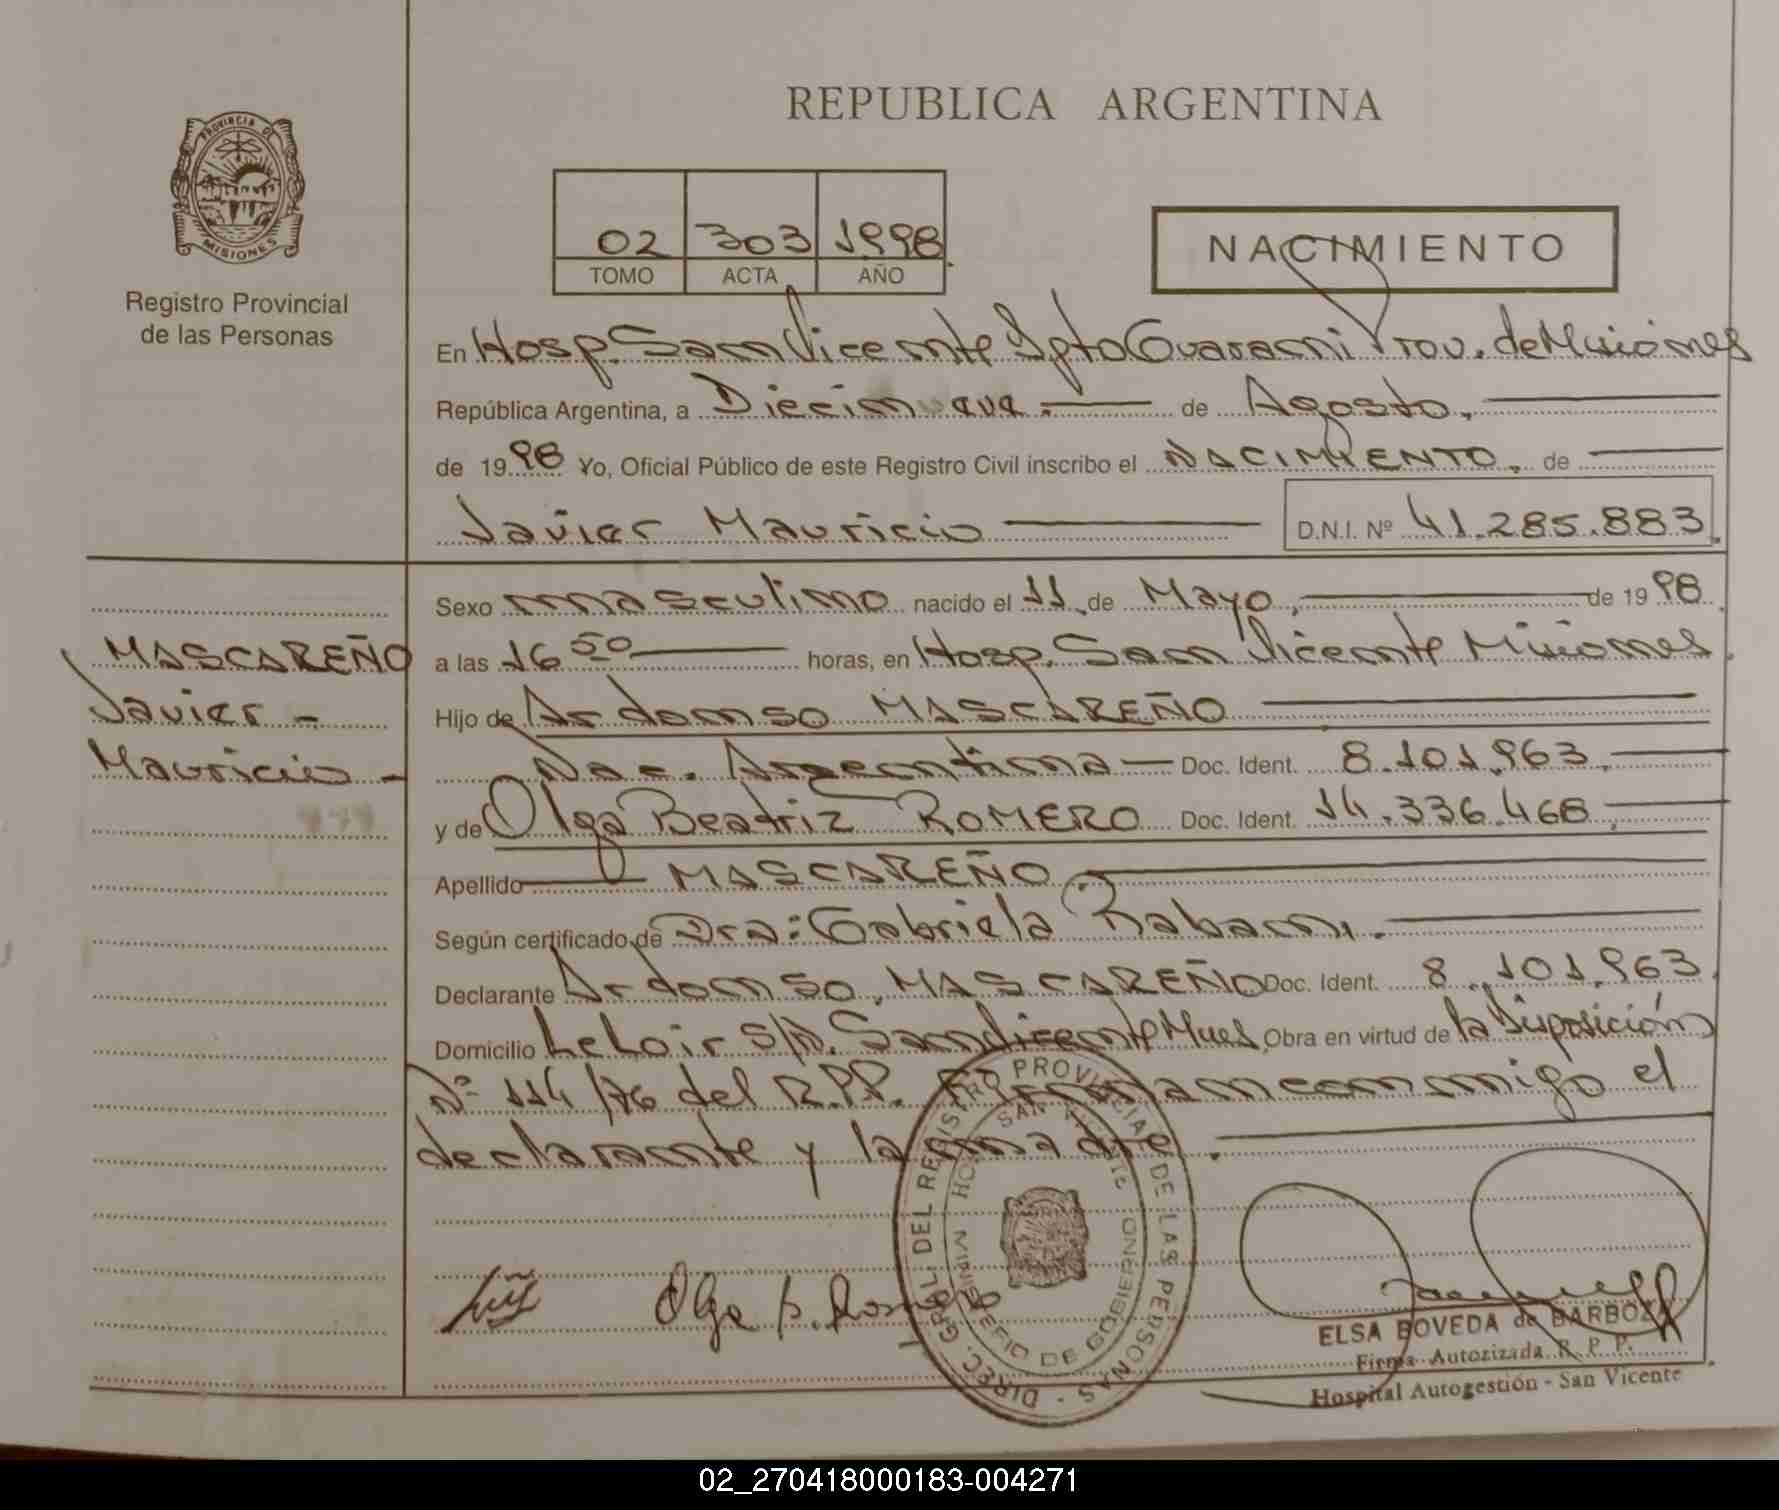 REPUBLICA ARGENTINA
PROVINCIA DE
MISIONES
Registro Provincial
de las Personas
02 303 1998
TOMO ACTA AÑO
NACIMIENTO
En Hosp. San Vicente Dpto Guarani Prov. de Misiones
República Argentina, a Diecinueve de Agosto,
de 1998 Yo, Oficial Público de este Registro Civil inscribo el NACIMIENTO, de
Javier Mauricio D.N.I. Nº 41.285.883
MASCAREÑO
Javier -
Mauricio -
Sexo masculino nacido el 11 de Mayo, de 1998
a las 16 50 horas, en Hosp. San Vicente Misiones.
Hijo de Ardonso MASCAREÑO
Nac. Argentina - Doc. Ident. 8.101.963.
y de Olga Beatriz ROMERO Doc. Ident. 14.336.468.
Apellido MASCAREÑO.
Según certificado de Dra: Gabriela
Declarante Ardonso, MASCAREÑO Doc. Ident. 8.101.963.
Domicilio LeLoir S/N. San Vicente Mnes. Obra en virtud de la Disposición
Nº 114/76 del R.P.P. Firman conmigo el
declarante y la madre.
DIREC. GRAL. DEL REGISTRO PROVINCIAL DE LAS PERSONAS -
SAN VICENTE
MINISTERIO DE GOBIERNO
Olga b. Romero
ELSA BOVEDA de BARBOZA
Firma Autorizada R. P. P.
Hospital Autogestión - San Vicente
02_270418000183-004271